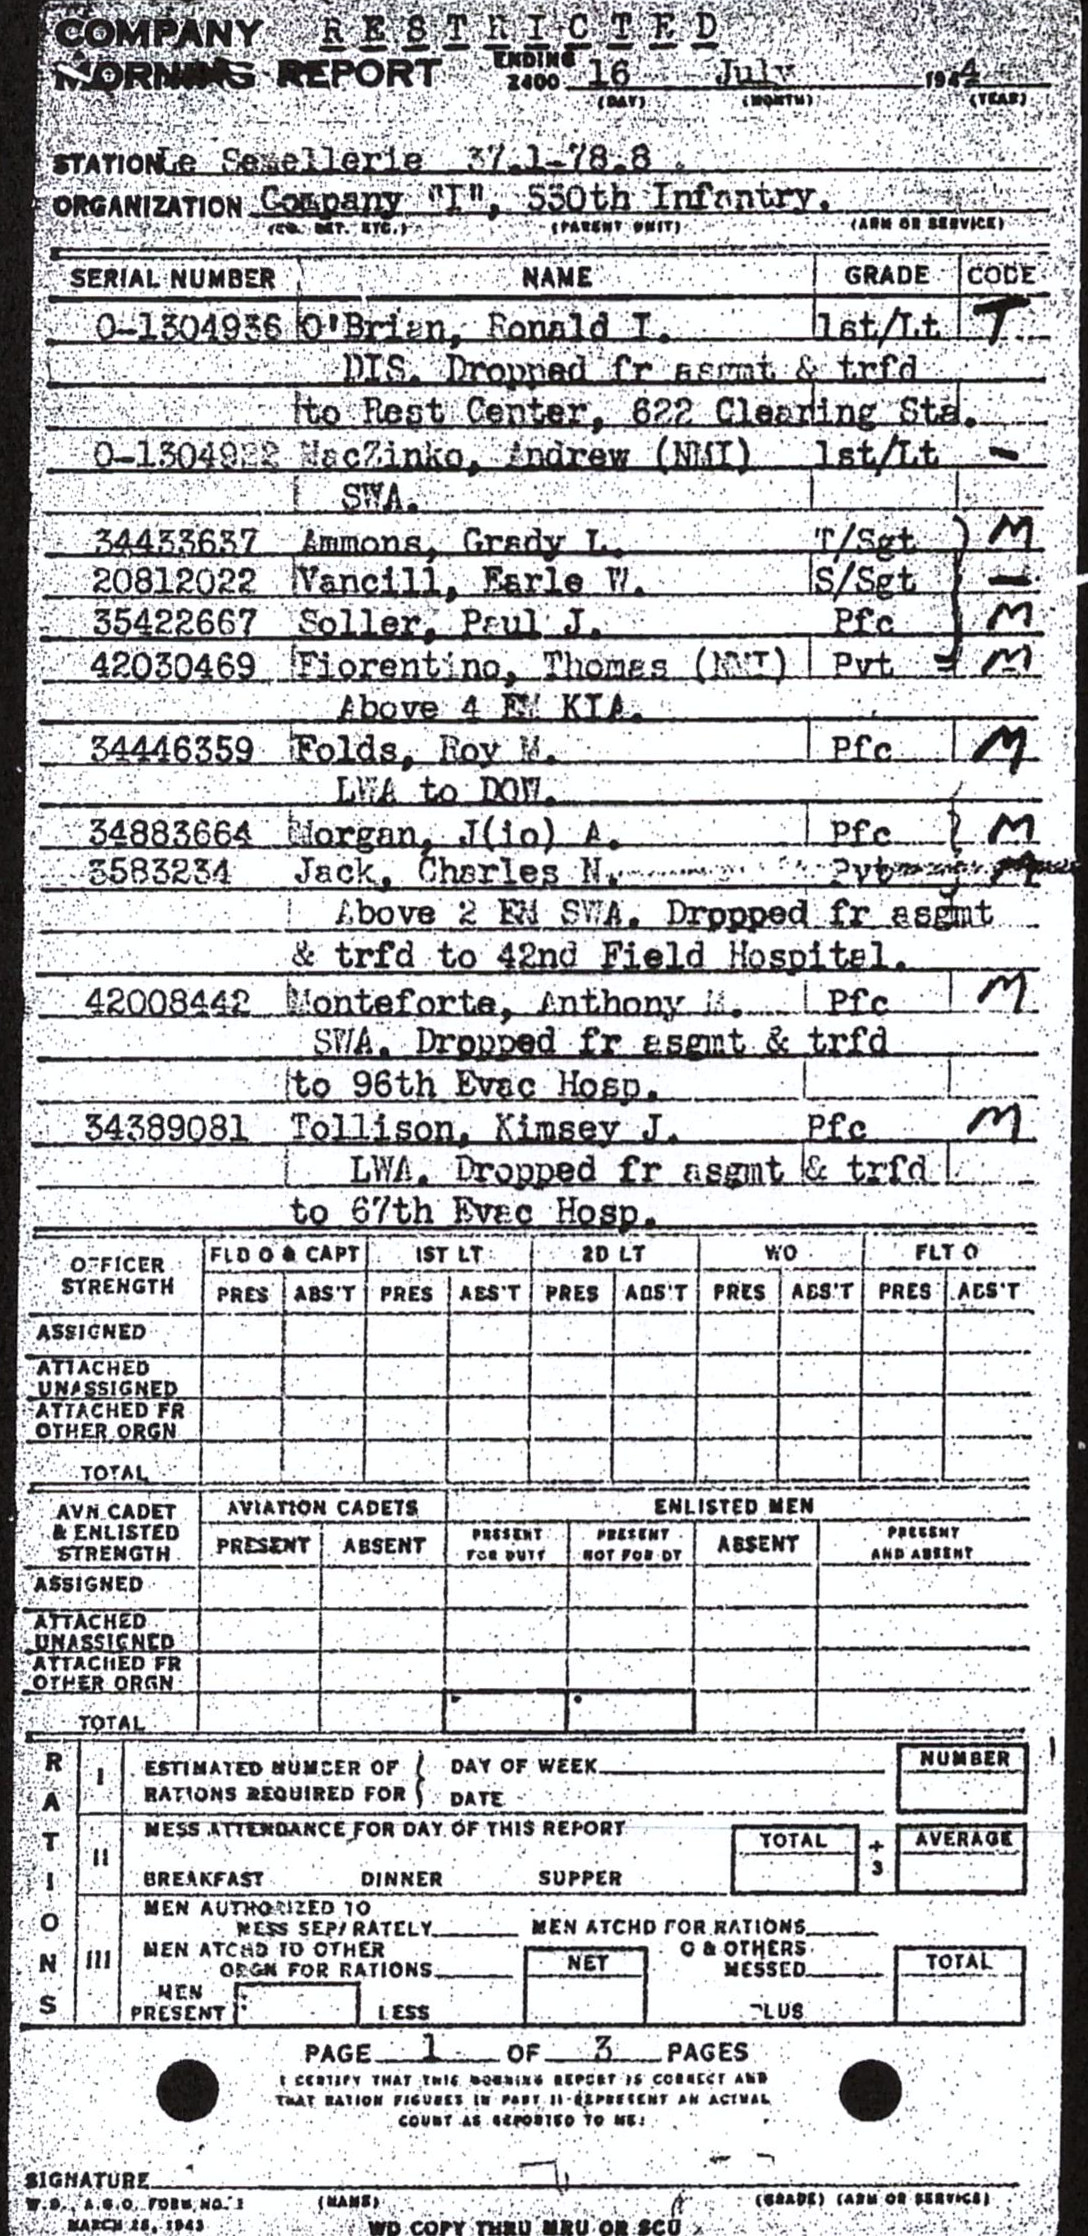 COMPANY RESTRICTED
MORNING REPORT ENDING 2400 16 July 1944
(DAY) (MONTH) (YEAR)
STATION Le 37.1-78.8
ORGANIZATION Company "I", 330th Infantry.
(CO. DET. ETC.) (PARENT UNIT) (ARM OR SERVICE)
SERIAL NUMBER NAME GRADE CODE
O-1304936 O'Brian, Ronald I. 1st/Lt T
DIS. Dropped fr asgmt & trfd
to Rest Center, 622 Clearing Sta.
O-1304922 MacZinko, Andrew (NMI) 1st/Lt -
SWA.
34433637 Ammons, Grady L. T/Sgt M
20812022 Vancill, Earle W. S/Sgt -
35422667 Soller, Paul J. Pfc M
42030469 Fiorentino, Thomas (NMI) Pvt M
Above 4 EM KIA.
34446359 Folds, Roy M. Pfc M
LWA to DOW.
34883664 Morgan, J(io) A. Pfc M
3583234 Jack, Charles N. Pvt
Above 2 EM SWA. Dropped fr asgmt
& trfd to 42nd Field Hospital.
42008442 Monteforte, Anthony M. Pfc M
SWA. Dropped fr asgmt & trfd
to 96th Evac Hosp.
34389081 Tollison, Kimsey J. Pfc M
LWA. Dropped fr asgmt & trfd
to 67th Evac Hosp.
OFFICER STRENGTH FLD O & CAPT 1ST LT 2D LT WO FLT O
PRES ABS'T PRES ABS'T PRES ABS'T PRES ABS'T PRES ABS'T
ASSIGNED
ATTACHED
UNASSIGNED
ATTACHED FR
OTHER ORGN
TOTAL
AVN CADET & ENLISTED STRENGTH AVIATION CADETS ENLISTED MEN
PRESENT ABSENT PRESENT FOR DUTY PRESENT NOT FOR DT ABSENT PRESENT AND ABSENT
ASSIGNED
ATTACHED
UNASSIGNED
ATTACHED FR
OTHER ORGN
TOTAL
RATIONS
I ESTIMATED NUMBER OF DAY OF WEEK NUMBER
RATIONS REQUIRED FOR DATE
II MESS ATTENDANCE FOR DAY OF THIS REPORT TOTAL ÷ 3 AVERAGE
BREAKFAST DINNER SUPPER
III MEN AUTHORIZED TO
MESS SEPARATELY MEN ATCHD FOR RATIONS
MEN ATCHD TO OTHER
ORGN FOR RATIONS NET O & OTHERS MESSED TOTAL
MEN PRESENT LESS PLUS
PAGE 1 OF 3 PAGES
I CERTIFY THAT THIS MORNING REPORT IS CORRECT AND
THAT RATION FIGURES IN PART II REPRESENT AN ACTUAL
COUNT AS REPORTED TO ME:
SIGNATURE
W.D., A.G.O. FORM NO. 1 (NAME) (GRADE) (ARM OR SERVICE)
MARCH 26, 1943 WD COPY THRU MRU OR SCU